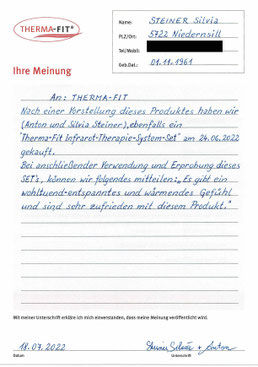 THERMA-FIT®
Name: STEINER Silvia
PLZ/Ort: 5722 Niedernsill
Tel/Mobil:
Geb.Dat.: 01.11.1961
Ihre Meinung
An: THERMA-FIT
Nach einer Vorstellung dieses Produktes haben wir
(Anton und Silvia Steiner), ebenfalls ein
"Therma-Fit Infrarot-Therapie-System-Set" am 24.06.2022
gekauft.
Bei anschließender Verwendung und Erprobung dieses
SET's, können wir folgendes mitteilen: „Es gibt ein
wohltuend-entspanntes und wärmendes Gefühl
und sind sehr zufrieden mit diesem Produkt."
Mit meiner Unterschrift erkläre ich mich einverstanden, dass meine Meinung veröffentlicht wird.
18.07.2022
Steiner Silvia + Anton
Datum
Unterschrift